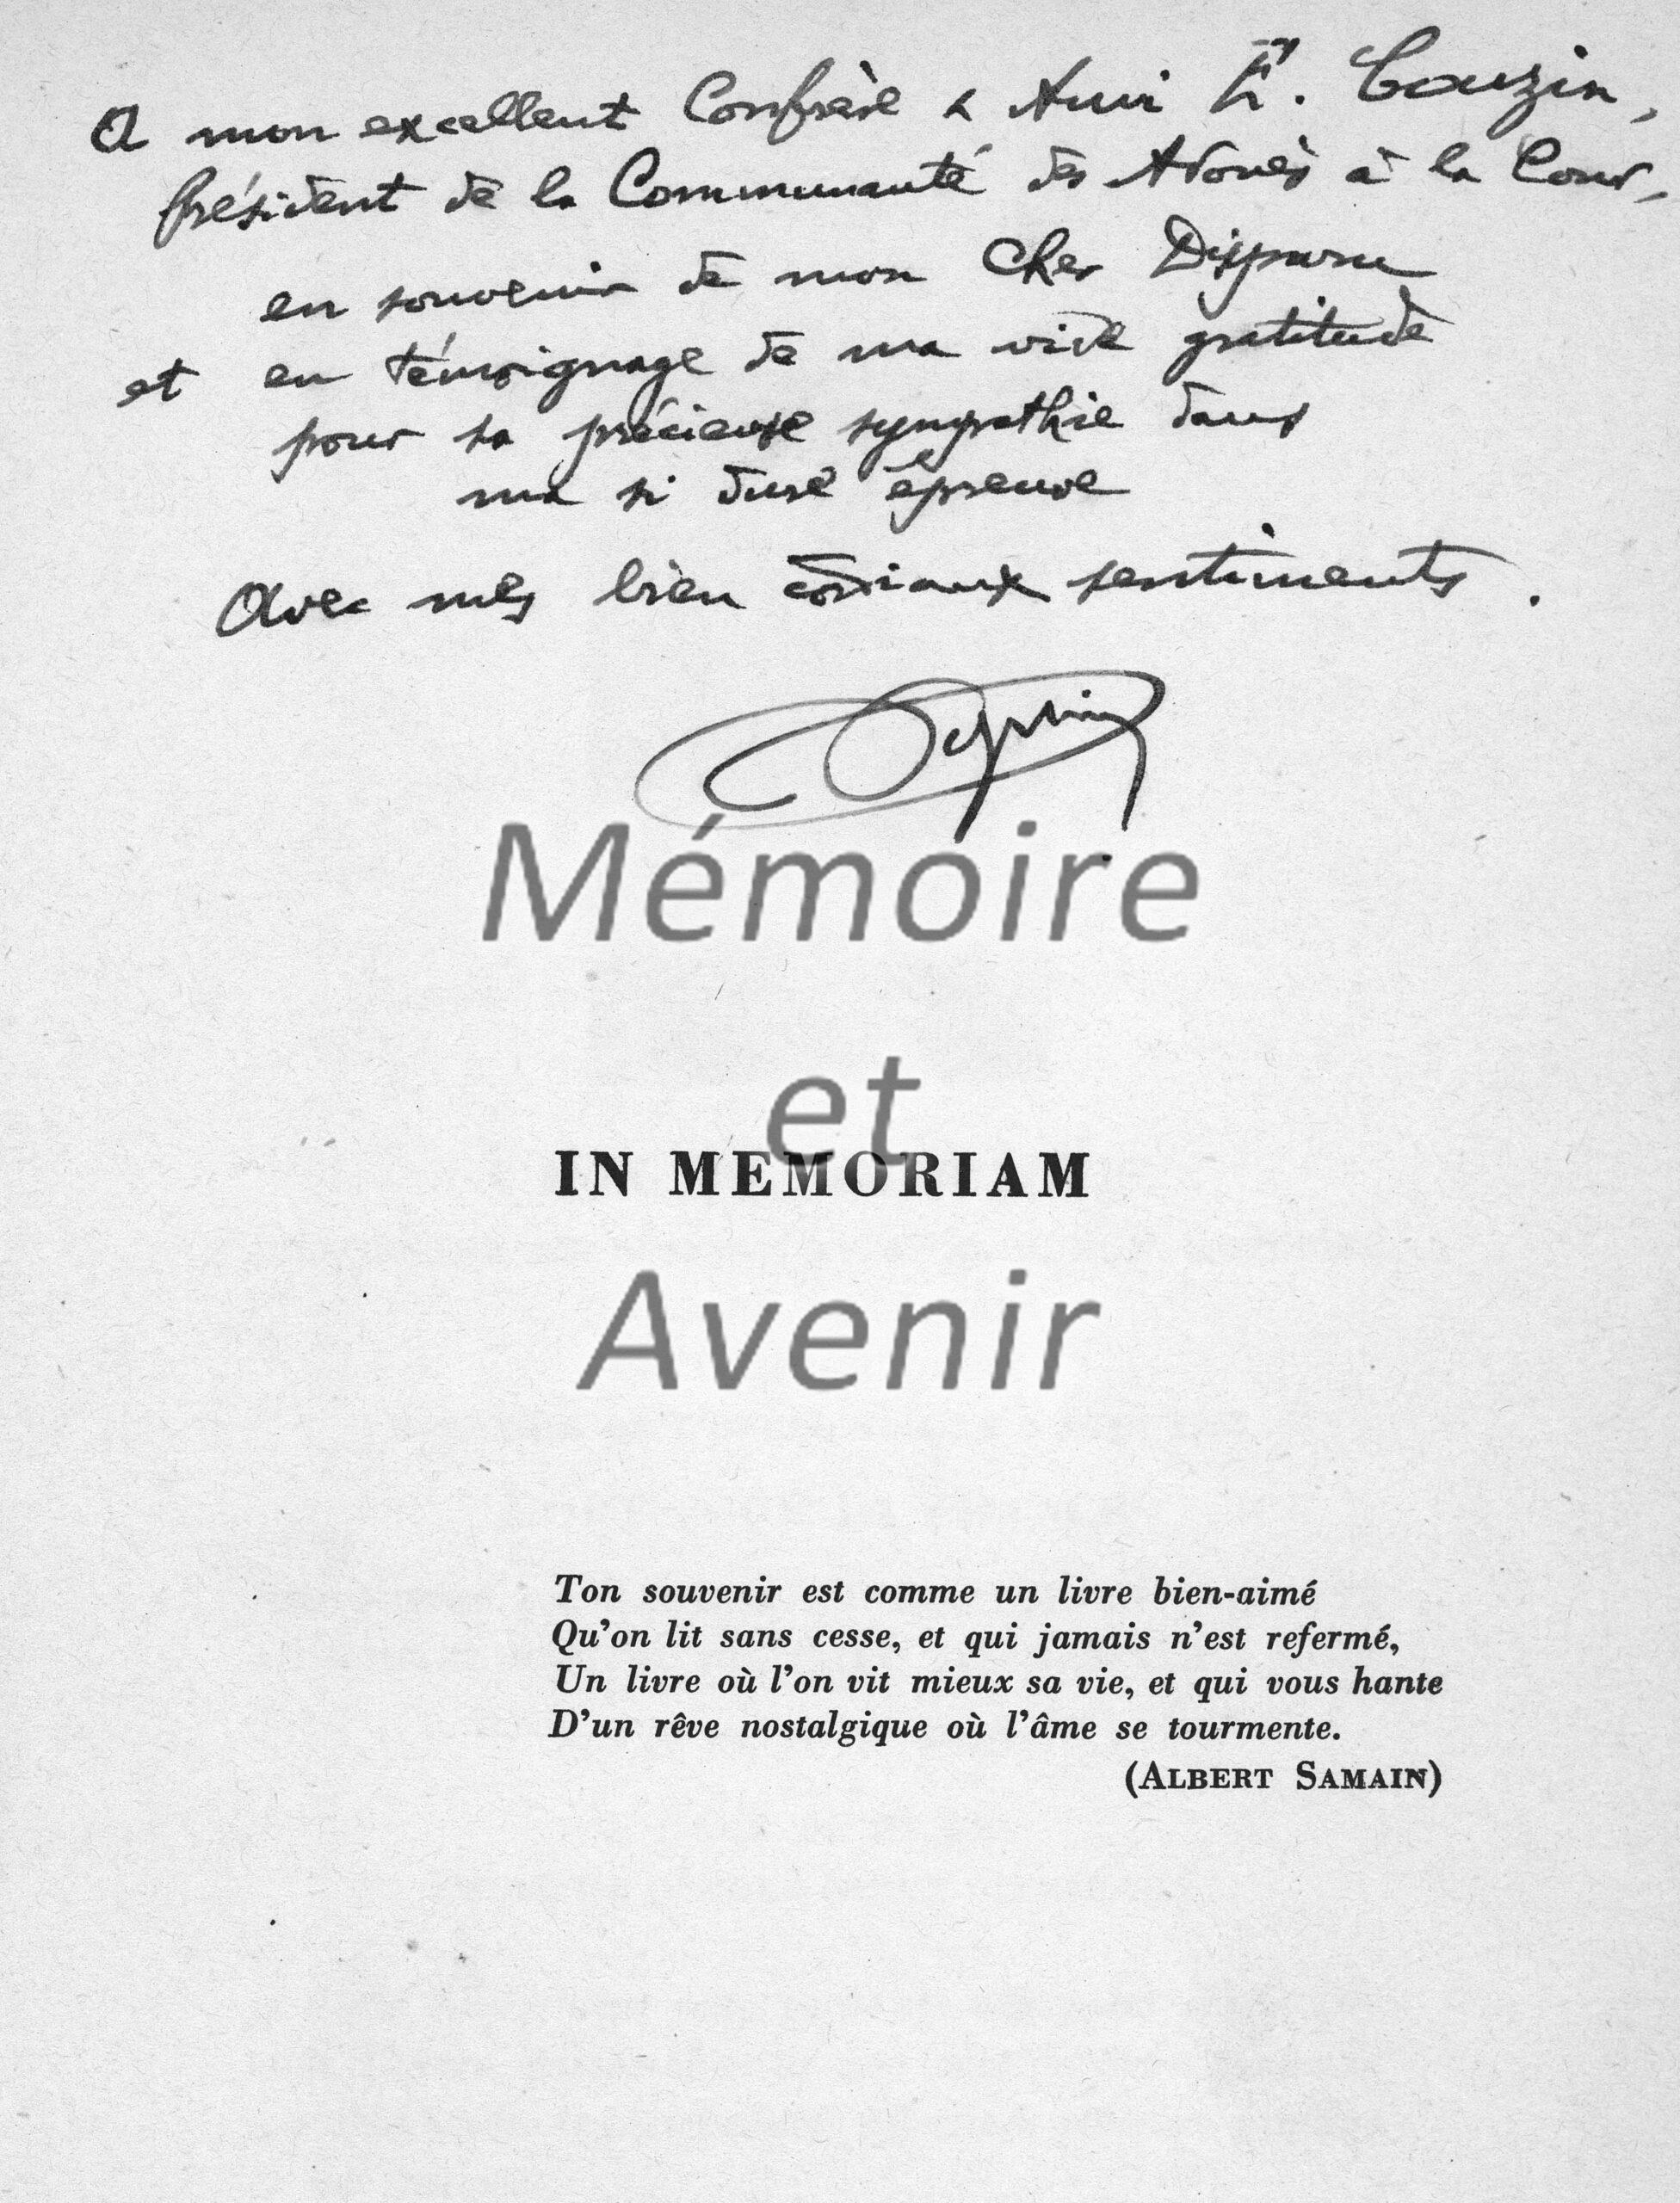 A mon excellent Confrère & Ami E. Couzin,
Président de la Communauté des Avoués à la Cour,
en souvenir de mon Cher Disparu
et en témoignage de ma vive gratitude
pour sa précieuse sympathie dans
ma si dure épreuve
Avec mes bien cordiaux sentiments.
Mémoire
et
IN MEMORIAM
Avenir
Ton souvenir est comme un livre bien-aimé
Qu'on lit sans cesse, et qui jamais n'est refermé,
Un livre où l'on vit mieux sa vie, et qui vous hante
D'un rêve nostalgique où l'âme se tourmente.
(ALBERT SAMAIN)